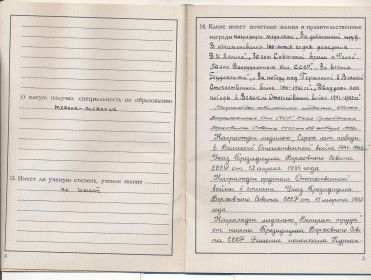 г) какую получил специальность по образованию
техник-механик
13. Имеет ли ученую степень, ученое звание
не имеет
4
14. Какие имеет почетные звания и правительственные
награды награжден медалями „За доблестный труд.
В ознаменование 100-летия со дня рождения
В.И. Ленина", „50 лет Советской Армии и Флота",
„60 лет Вооруженных Сил СССР", „За взятие
Будапешта", „За победу над Германией в Великой
Отечественной войне 1941-1945гг.", „Двадцать лет
победы в Великой Отечественной войне 1941-1945гг."
Вооруженных Сил СССР" Указ Президиума
Верховного Совета
Награжден медалью „Сорок лет победы
в Великой Отечественной войне 1941-1945гг."
Указ Президиума Верховного Совета
СССР от 12 апреля 1985 года
Награжден орденом Отечественной
войны II степени Указ Президиума
Верховного Совета СССР от 11 марта 1985
года
Награжден медалью „Ветеран труда"
от имени Президиума Верховного Сове-
та СССР Решение исполкома
5